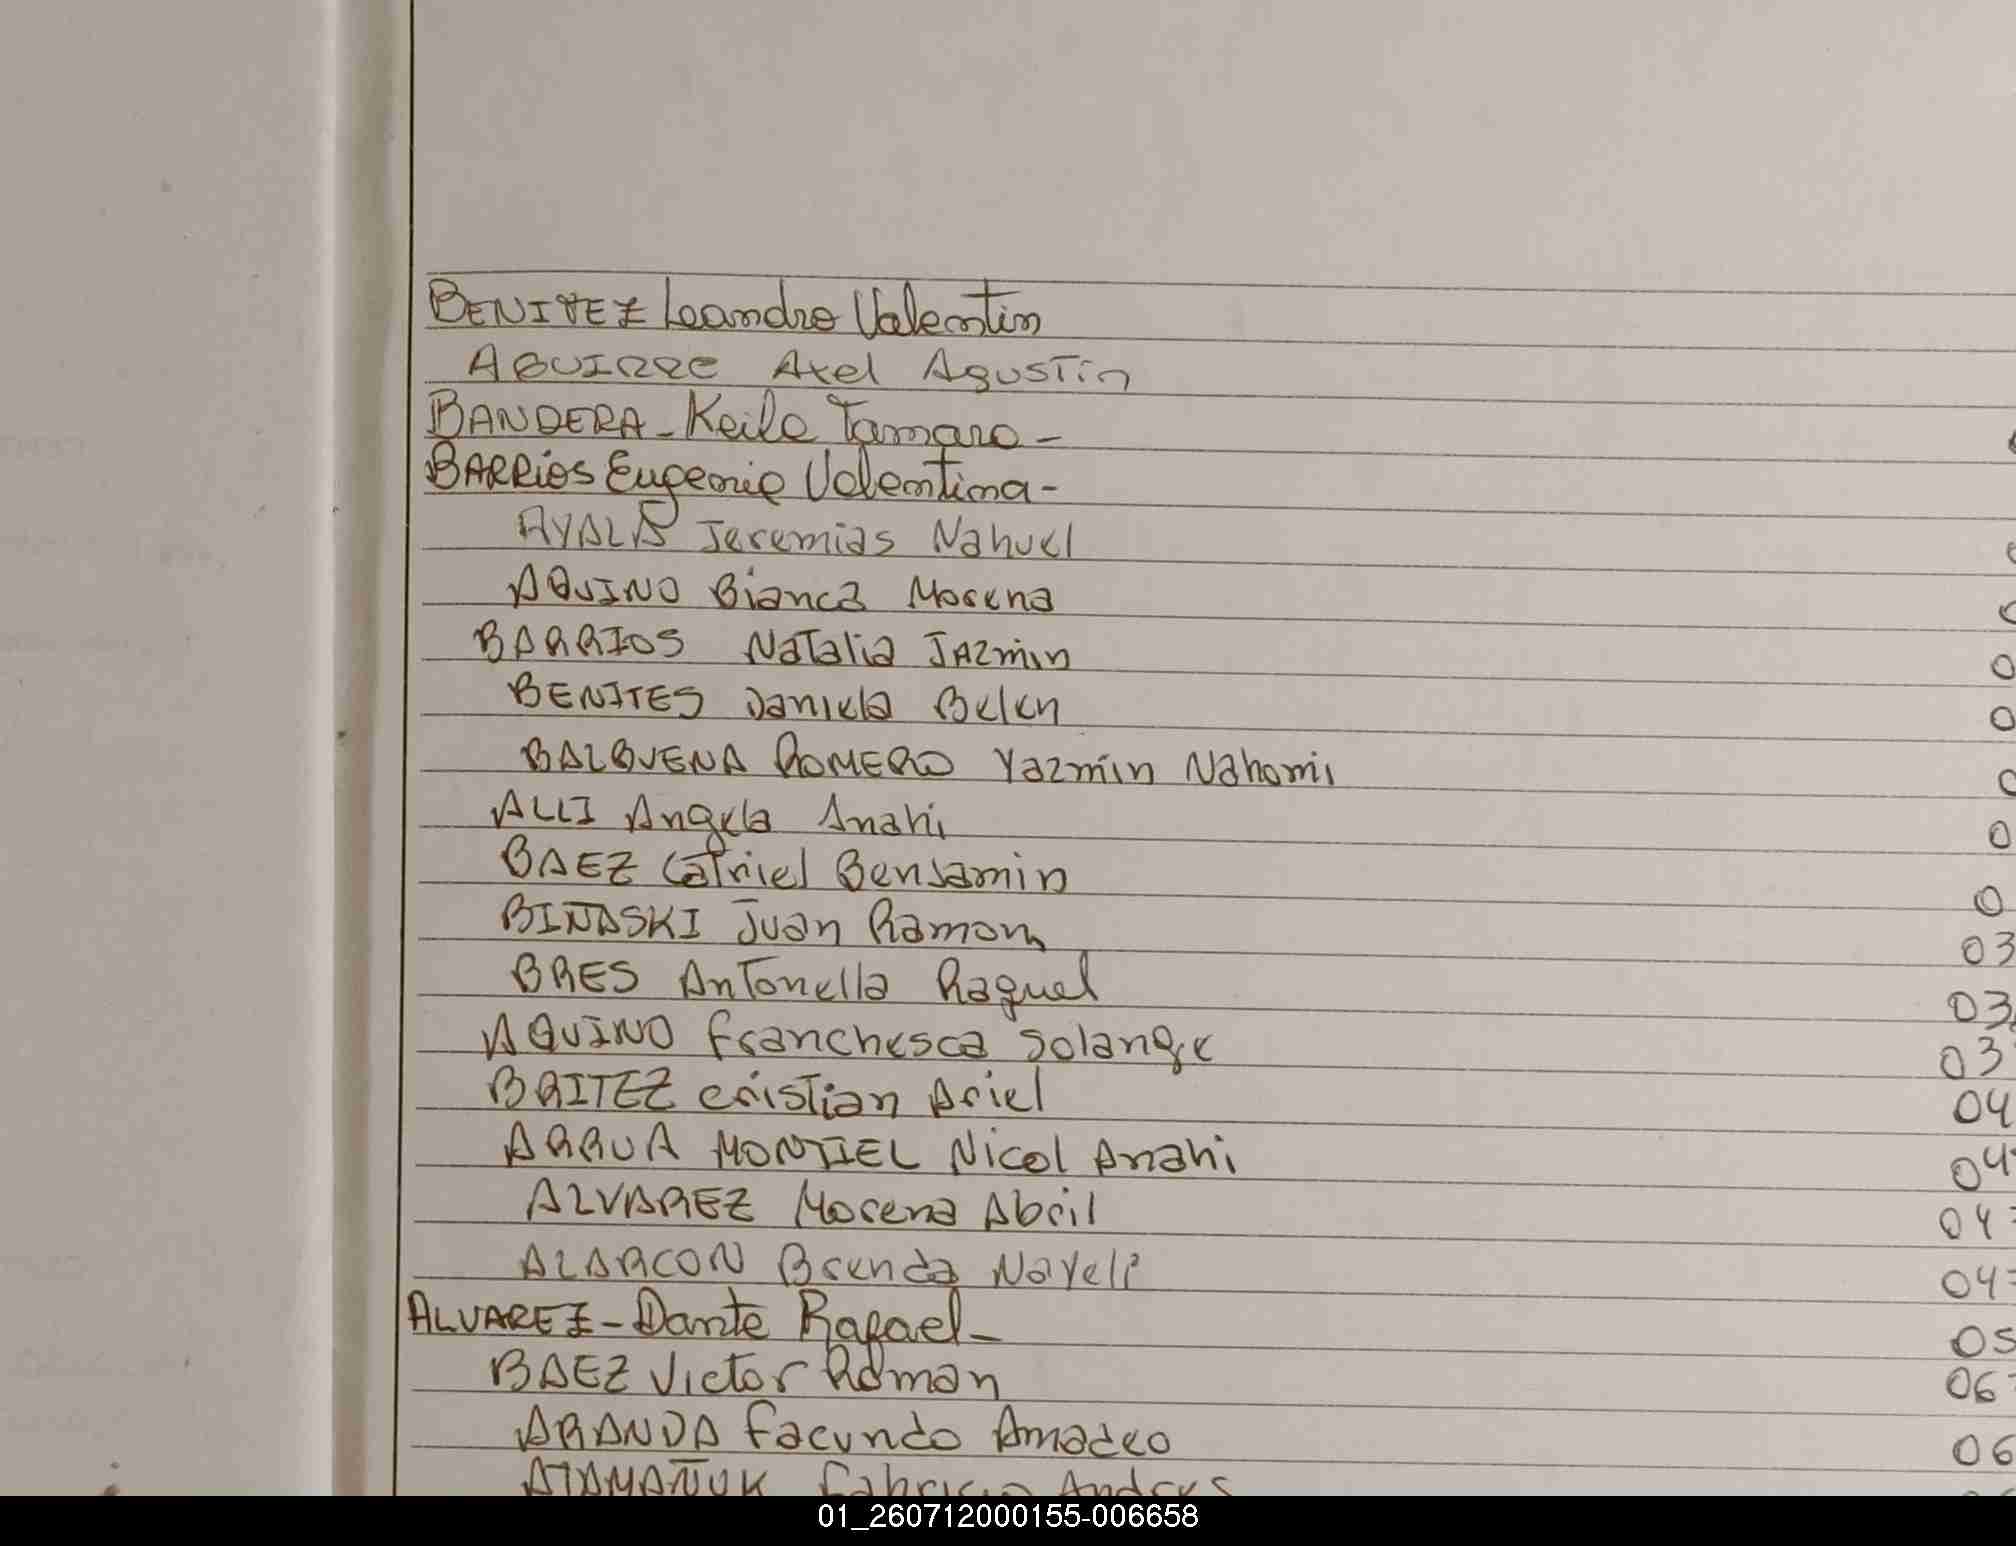 BENITEZ Leandro Valentin
AGUIRRE Axel Agustin
BANDERA - Keila Tamara -
BARRIOS Eugenie Valentina -
AYALA Jeremias Nahuel
AQUINO Bianca Morena
BARRIOS Natalia JAzmin 0
BENITES Daniela Belen 0
BALBUENA ROMERO Yazmin Nahomi 0
ALLI Angela Anahi 0
BAEZ Catriel Benjamin 0
BINASKI Juan Ramon 03
BRES Antonella Raquel 03
AQUINO Franchesca Solange 03
BRITEZ Cristian Ariel 04
ARRUA MONTIEL Nicol Anahi 04
ALVAREZ Morena Abril 04
ALARCON Brenda Nayeli 04
ALVAREZ - Dante Rafael - 05
BAEZ Victor Roman 06
ARANDA Facundo Amadeo 06
ATAMAÑUK Fabricio Andres
01_260712000155-006658